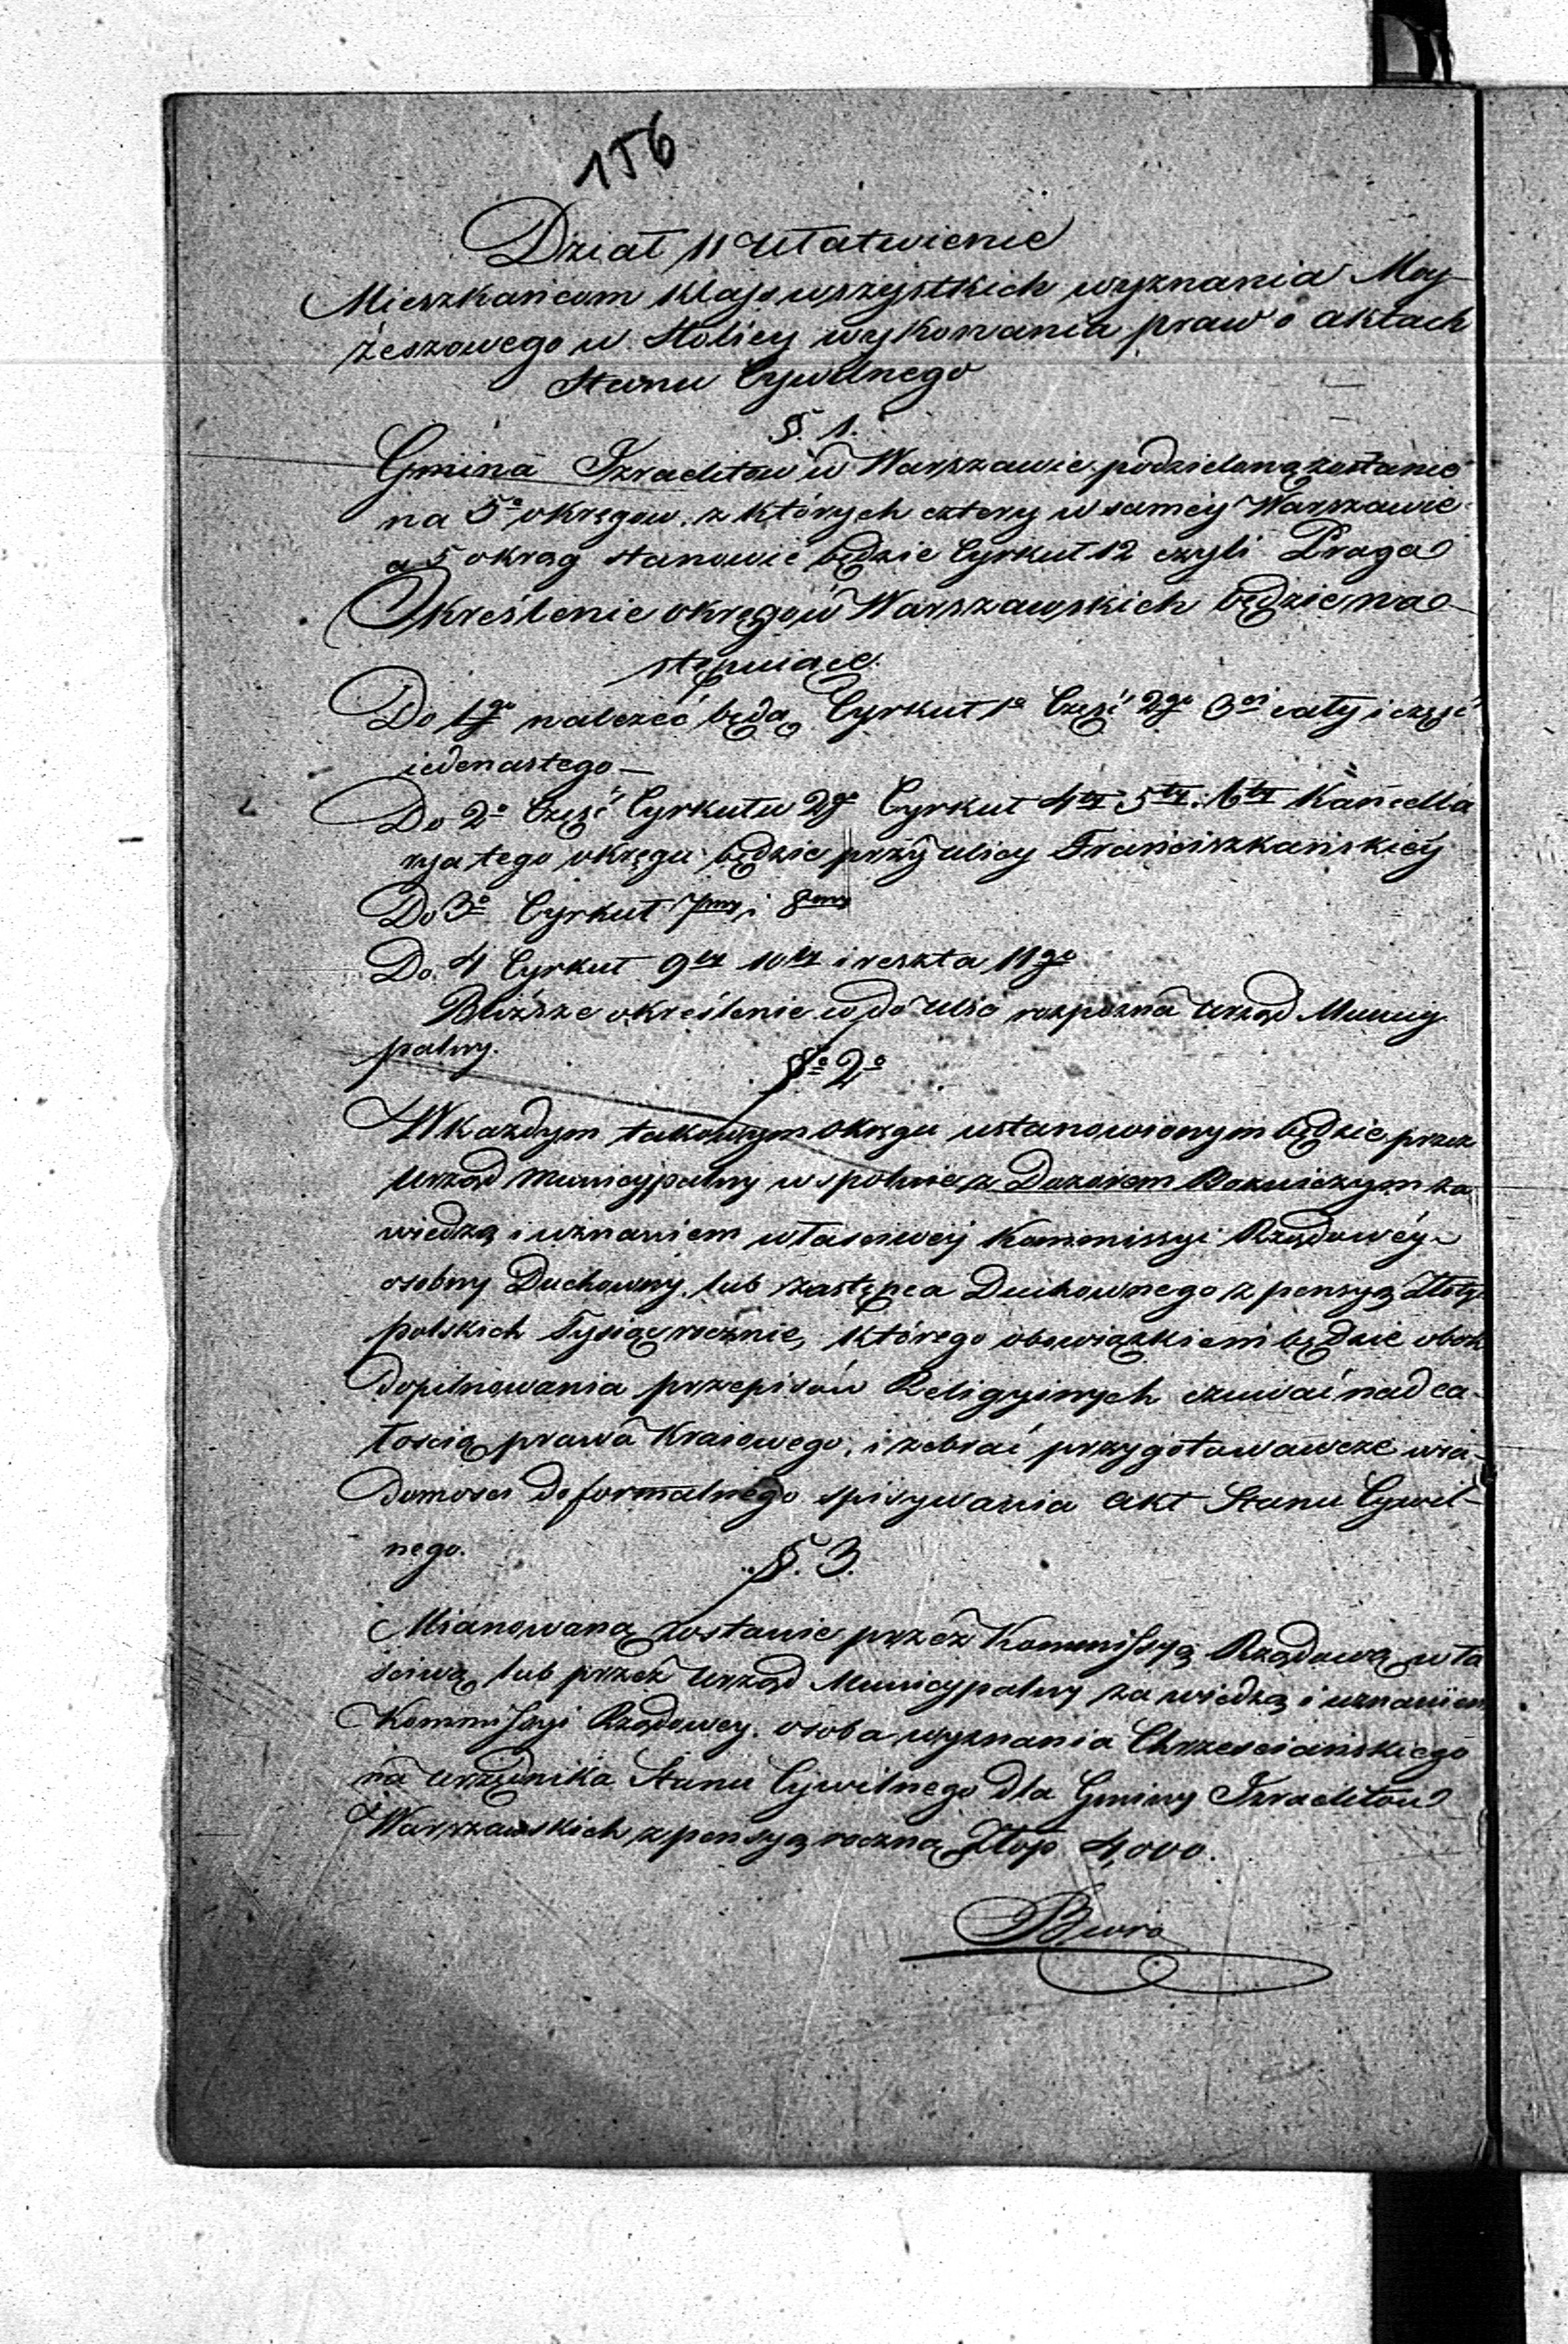 156
Dział II Ułatwienie
Mieszkańcom klass wszystkich wyznania Moy-
żeszowego w Stolicy wykonania praw o aktach
Stanu Cywilnego
§. 1.
Gmina Izraelitów w Warszawie podzieloną zostanie
na 5° okręgow, z których cztery w samey Warszawie
a 5 okrąg stanowić będzie Cyrkuł 12 czyli Praga
Okreslenie okręgów Warszawskich będzie na-
stępuiące.
Do 1go należeć będą Cyrkuł 1° Część 2go 3ci cały i część
iedenastego —
Do 2° Część Cyrkułu 2go Cyrkuł 4ty 5ty i 6ty Kancella
rya tego okręgu będzie przy ulicy Franciszkańskiéy
Do 3° Cyrkuł 7my i 8my
Do 4 Cyrkuł 9ty 10ty i reszta 11go
Bliższe określenie co do ulic rozpozna Urząd Municy
palny.
§° 2°
W każdym takowym okręgu ustanowionym będzie przez
Urząd Municypalny wspolnie z Dozorem Bożniczym za
wiedzą i uznaniem właściwey Kommissyi Rządowéy
osobny Duchowny, lub zastępca Duchownego z pensyą Złoty
polskich Tysiąc rocznie, którego obowiązkiem będzie obok
dopilnowania przepisów Religyinych czuwać nad ca-
łoscią prawa Kraiowego, i zebrać przygotowawcze wia-
domosci do formalnego spisywania akt Stanu Cywil-
nego.
§. 3.
Mianowaną zostanie przez Kommissyą Rządową wła
ściwą lub przez Urząd Municypalny za wiedzą i uznaniem
Kommissyi Rządowey. osoba wyznania Chrzesciańskiego
na urzędnika Stanu Cywilnego dla Gminy Izraelitow
Warszawskich, z pensyą roczną Złop 4,000.
Biuro